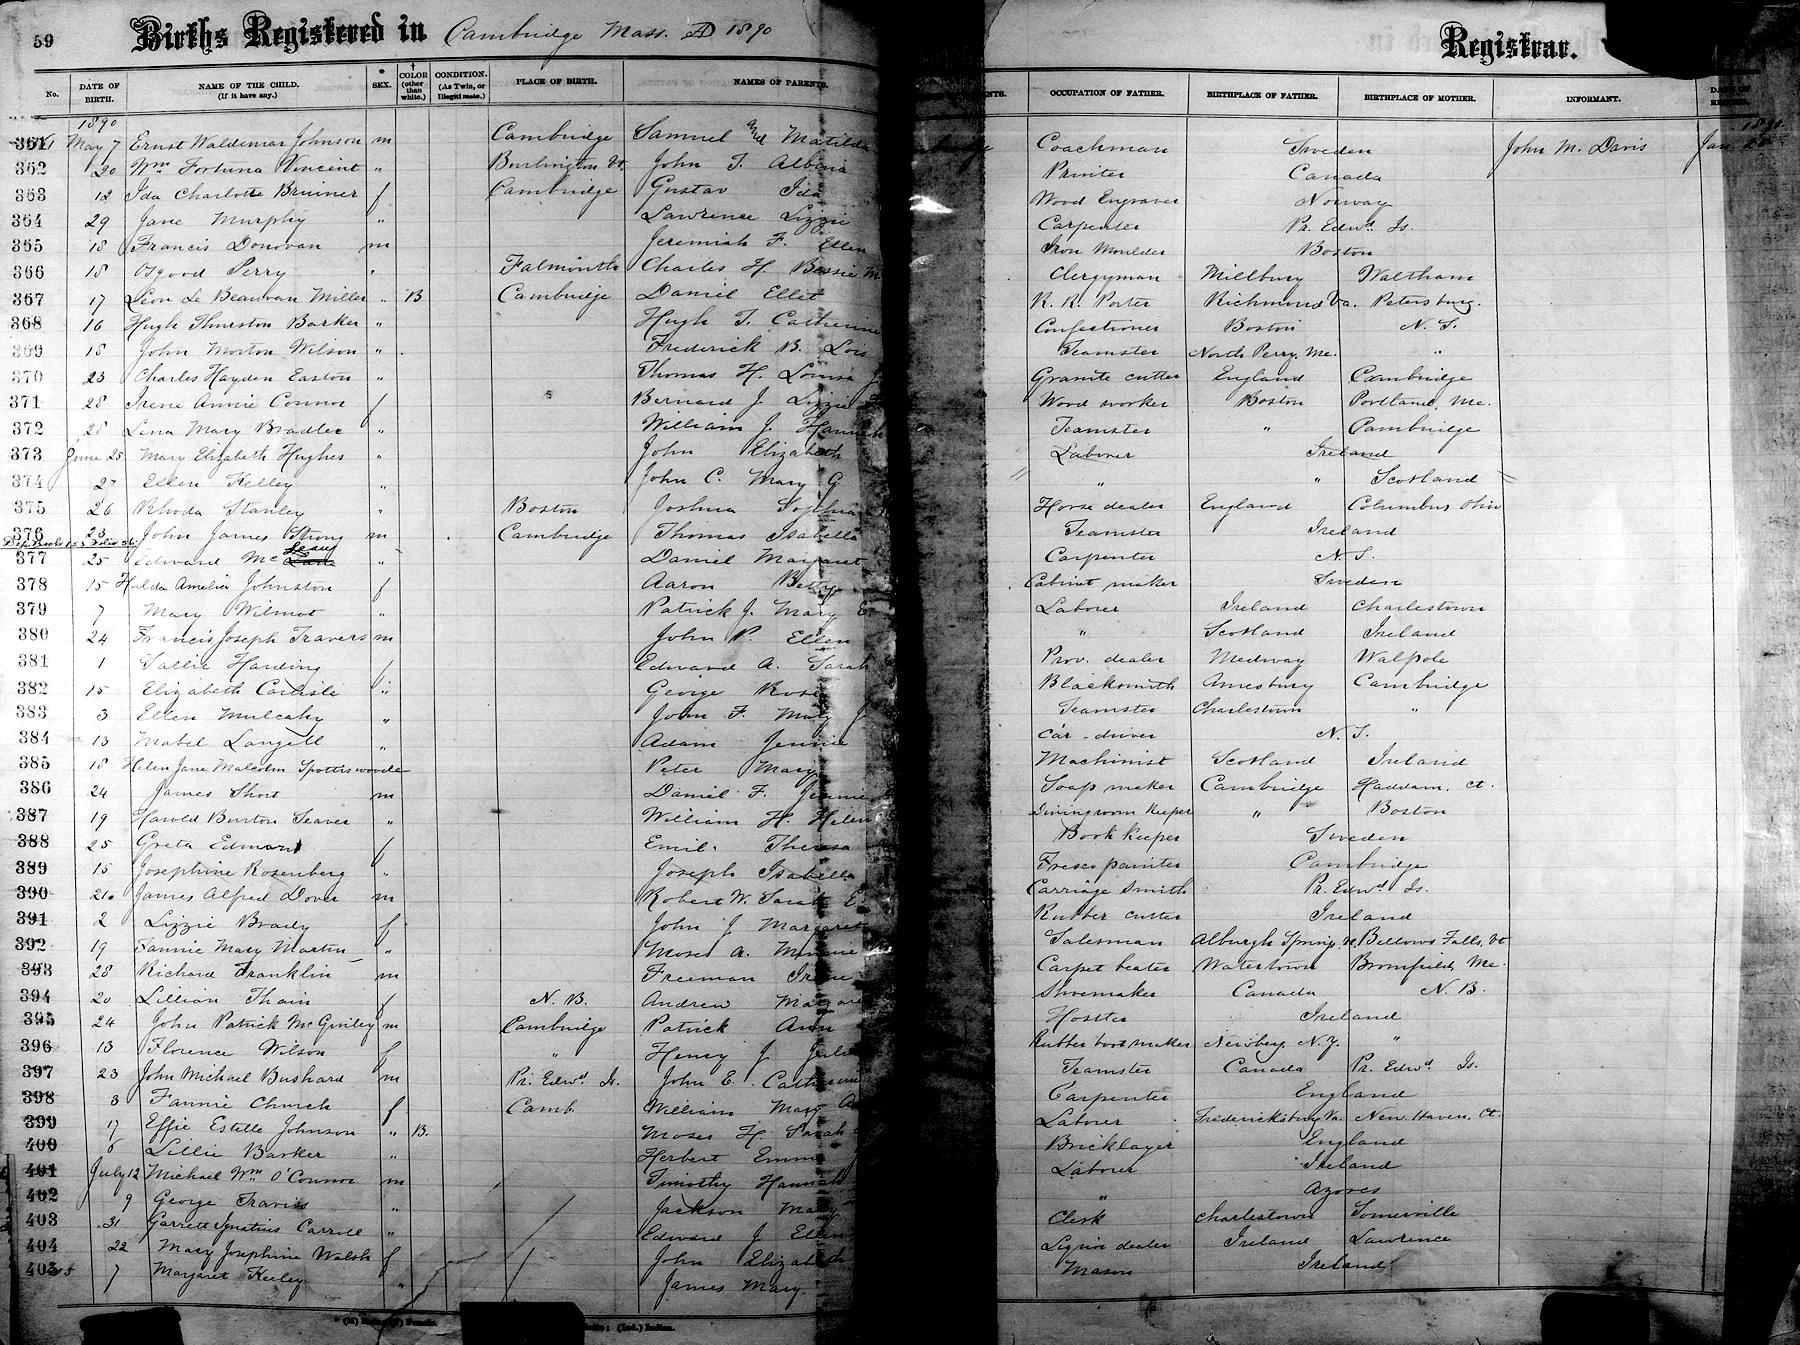 59 Births Registered in Cambridge Mass. AD 1890 Registrar.
No. DATE OF BIRTH. NAME OF THE CHILD. (If it have any.) * SEX. † COLOR (other than white.) CONDITION. (As Twin, or Illegitimate.) PLACE OF BIRTH. NAMES OF PARENTS. OCCUPATION OF FATHER. BIRTHPLACE OF FATHER. BIRTHPLACE OF MOTHER. INFORMANT.
1890
361 May 7 Ernst Waldemar Johnson m Cambridge Samuel and Matilda Coachman Sweden John M. Davis Jan.
362 20 Wm Fortuna Vincent " Burlington Vt. John T. Albina Printer Canada
363 12 Ida Charlotte Bruiner f Cambridge Gustav Ida Wood Engraver Norway
364 29 Jane Murphy " Lawrence Lizzie Carpenter Pr. Edwd Is.
365 18 Francis Donovan m Jeremiah F. Ellen Iron Moulder Boston
366 18 Osgood Perry " Falmouth Charles H. Bessie M Clergyman Millbury Waltham
367 17 Leon Le Beauvan Miller " B Cambridge Daniel Ellet R. R. Porter Richmond Va. Petersburg.
368 16 Hugh Thurston Barker " Hugh T. Catherine Confectioner Boston N. S.
369 18 John Morton Wilson " Frederick B. Lois Teamster North Perry, Me. "
370 23 Charles Hayden Easton " Thomas H. Louisa J Granite cutter England Cambridge
371 28 Irene Annie Connor f Bernard J. Lizzie Wood worker Boston Portland, Me.
372 28 Lena Mary Bradlee " William J. Hannah Teamster " Cambridge
373 June 25 Mary Elizabeth Hughes " John Elizabeth Laborer Ireland
374 27 Ellen Kelley " John C. Mary G " " Scotland
375 26 Rhoda Stanley " Boston Joshua Sophia Horse dealer England Columbus Ohio
376 23 John James Strong m Cambridge Thomas Isabella Teamster Ireland
377 25 Edward Mc " Daniel Margaret Carpenter N. S.
378 15 Hulda Amelia Johnston f Aaron Betty Cabinet maker Sweden
379 7 Mary Wilmot " Patrick J. Mary E. Laborer Ireland Charlestown
380 24 Francis Joseph Travers m John P. Ellen " Scotland Ireland
381 1 Sallie Harding f Edward A. Sarah Prov. dealer Medway Walpole
382 15 Elizabeth Carlisle " George Rose Blacksmith Amesbury Cambridge
383 3 Ellen Mulcahy " John F. Mary J Teamster Charlestown "
384 13 Mabel Langell " Adam Jennie Car-driver N. S.
385 18 Helen Jane Malcolm Spottiswoode Peter Mary Machinist Scotland Ireland
386 24 James Short m Daniel F. Jennie Soap maker Cambridge Haddam, Ct.
387 19 Harold Burton Seaver " William H. Helen Diningroom Keeper " Boston
388 25 Greta Edmond f Emil Theresa Book Keeper Sweden
389 15 Josephine Rosenberg " Joseph Isabella Fresco painter Cambridge
390 21 James Alfred Dover m Robert W. Sarah E. Carriage Smith Pr. Edwd Is.
391 2 Lizzie Brady f John J Margaret Rubber cutter Ireland
392 19 Fannie Mary Martin " Moses A. Minnie Salesman Alburgh Springs, Vt. Bellows Falls, Vt
393 28 Richard Franklin m Freeman Irene Carpet beater Watertown Bromfield, Me.
394 20 Lillian Thain f N. B. Andrew Margaret Shoemaker Canada N. B.
395 24 John Patrick McGinley m Cambridge Patrick Ann Hostler Ireland
396 13 Florence Wilson f " Henry J Julia Rubber boot maker Newberg, N.Y. "
397 23 John Michael Bushard m Pr. Edwd Is. John E. Catherine Teamster Canada Pr. Edwd Is.
398 3 Fannie Church f Camb. William Mary A Carpenter England
399 17 Effie Estelle Johnson " B. Moses H. Sarah Laborer Fredericksburg Va. New Haven, Ct.
400 6 Lillie Barker " Herbert Emma Bricklayer England
401 July 12 Michael Wm O'Connor m Timothy Hannah Laborer Ireland
402 9 George Traviss " Jackson Mary " Azores
403 31 Garrett Ignatius Carroll " Edward J Ellen Clerk Charlestown Somerville
404 22 Mary Josephine Walsh f John Elizabeth Liquor dealer Ireland Lawrence
405 7 Margaret Keeley " James Mary Mason Ireland
(Ind.) Indian.